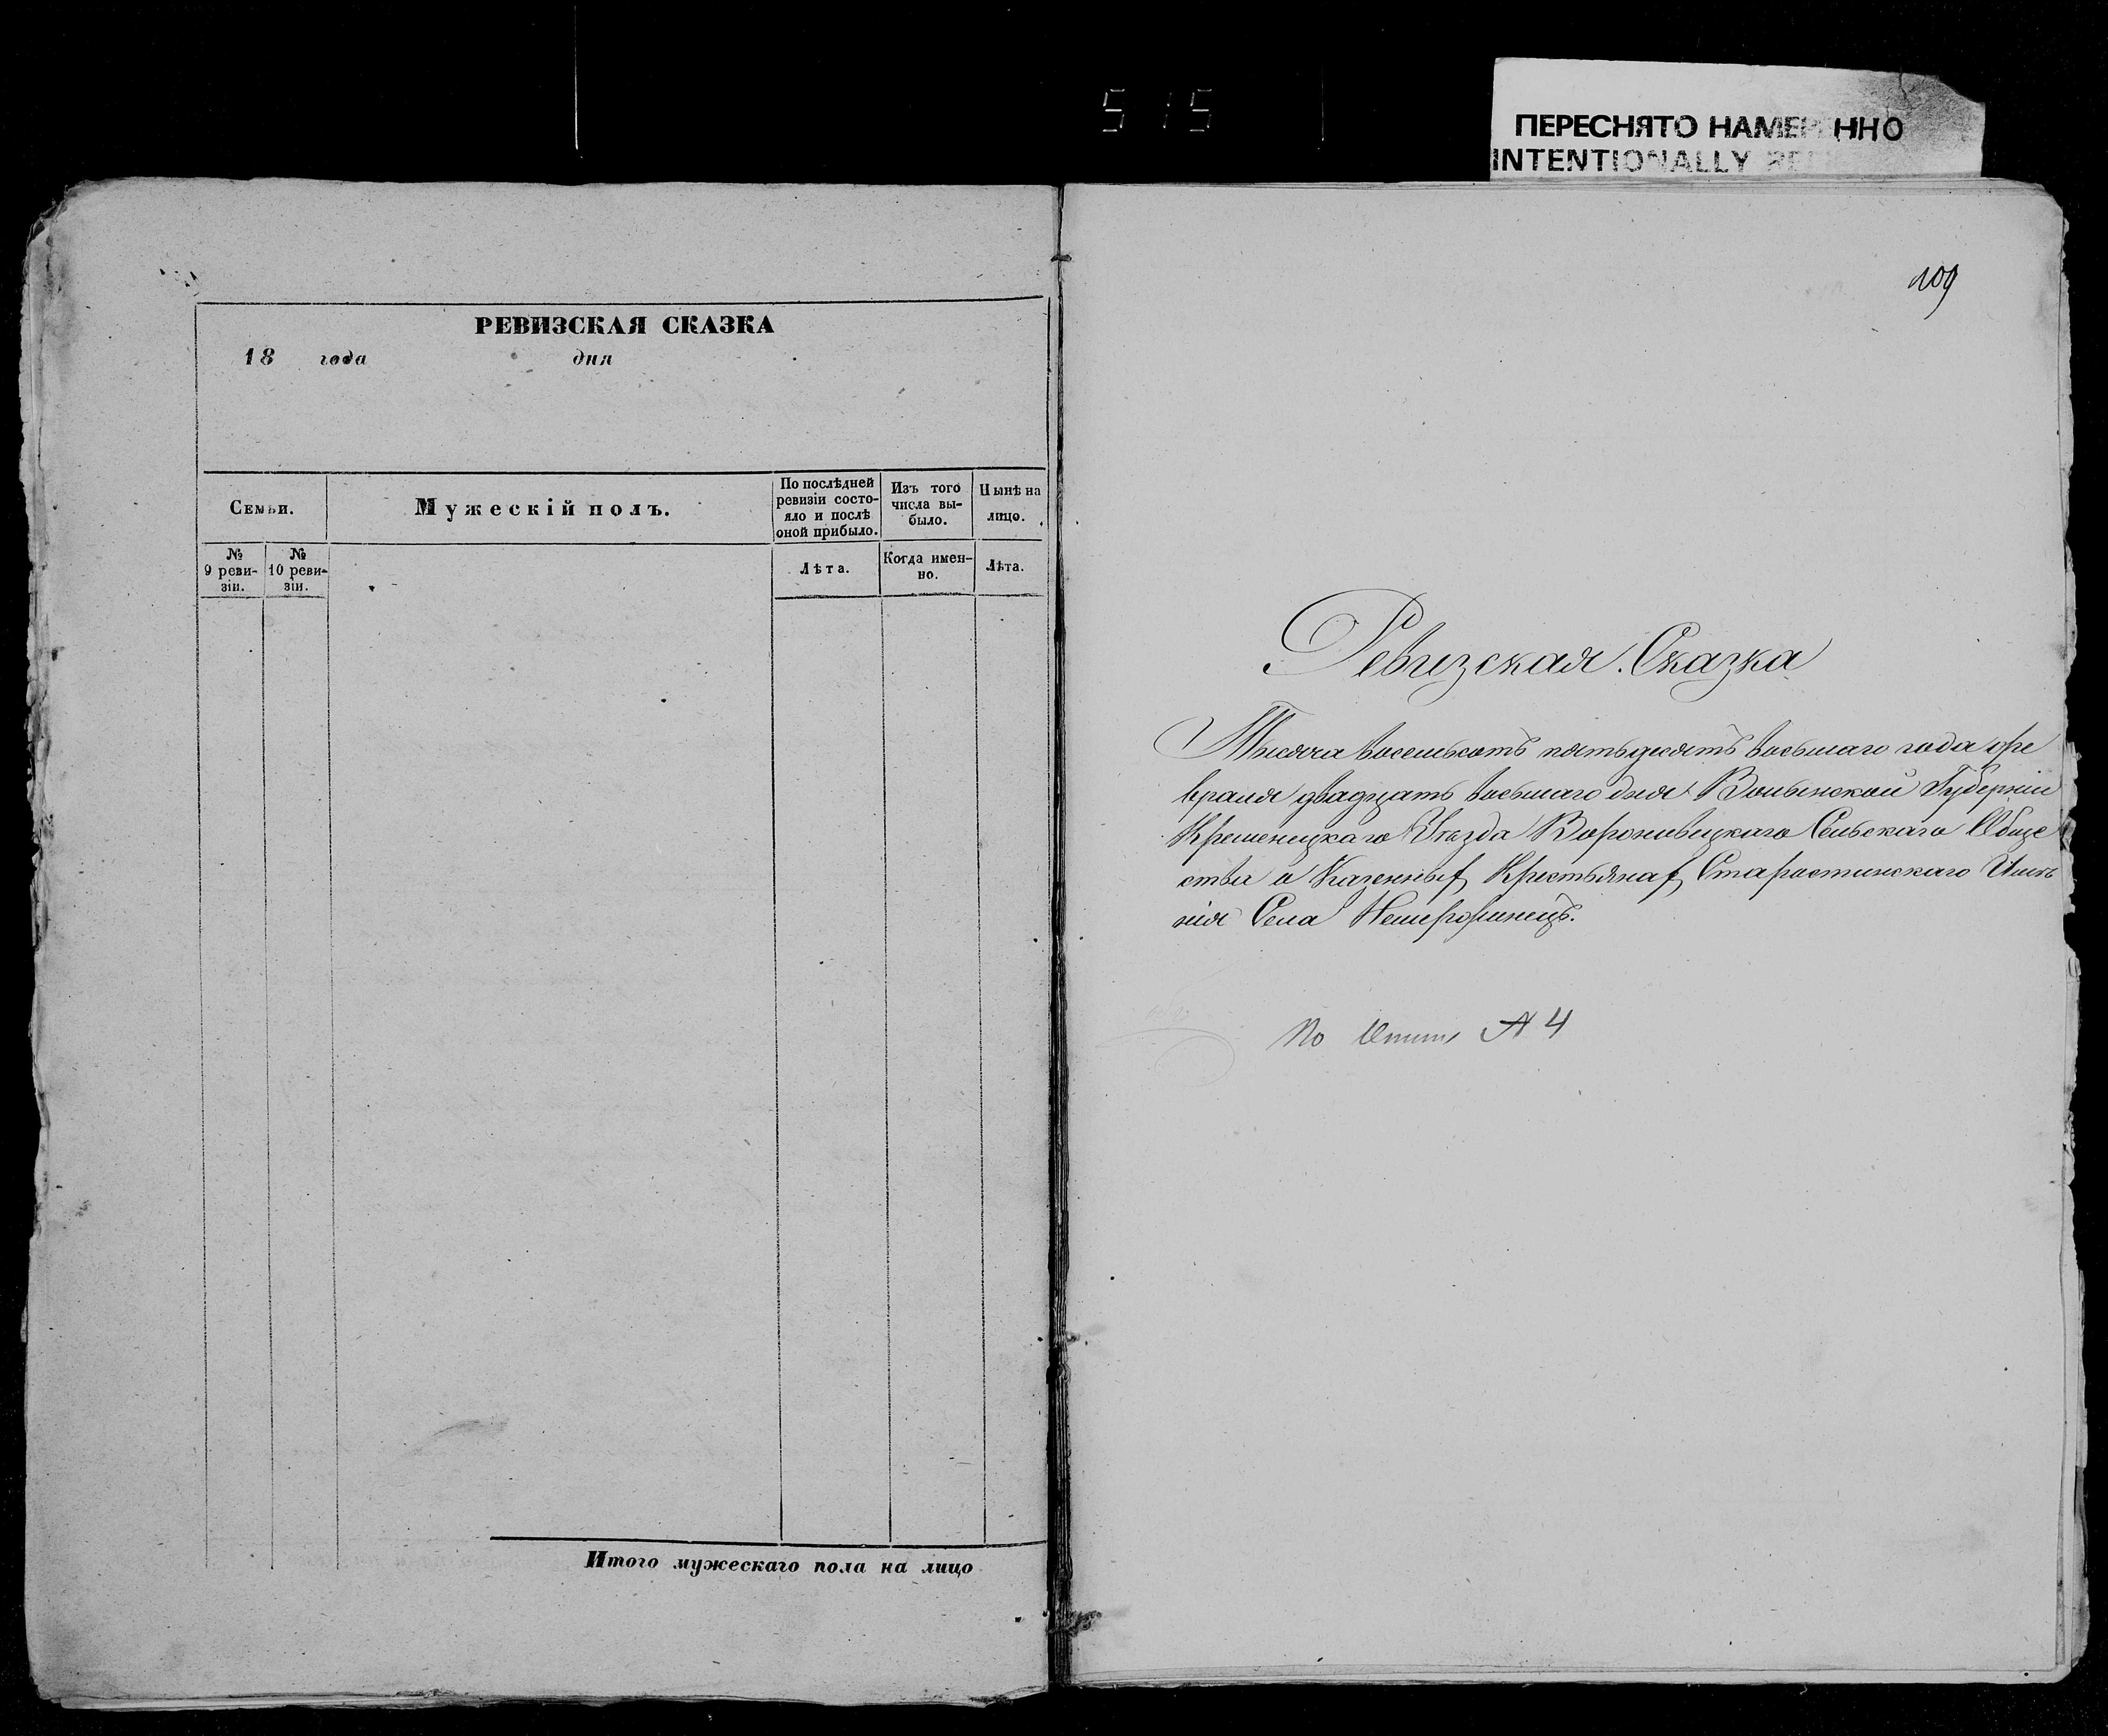 515
ПЕРЕСНЯТО НАМЕРЕННО
INTENTIONALLY
РЕВИЗСКАЯ СКАЗКА
18 года дня
Семьи.
Мужескій полъ.
По послѣдней
ревизіи состо-
яло и послѣ
оной прибыло.
Изъ того
числа вы-
было.
Нынѣ на
лицо.
№
9 реви-
зіи.
№
10 реви-
зіи.
Лѣта.
Когда имен-
но.
Лѣта.
Итого мужескаго пола на лицо
109
Ревизская Сказка
Тысяча восемьсотъ пятьдесятъ восьмаго года фе
враля двадцать восьмаго дня Волынской Губерніи
Кременецкаго Уѣзда Вороновецкаго Сельскаго Обще
ства о Казенныхъ Крестьянахъ Старостинскаго Имѣ
нія Села
По № 4